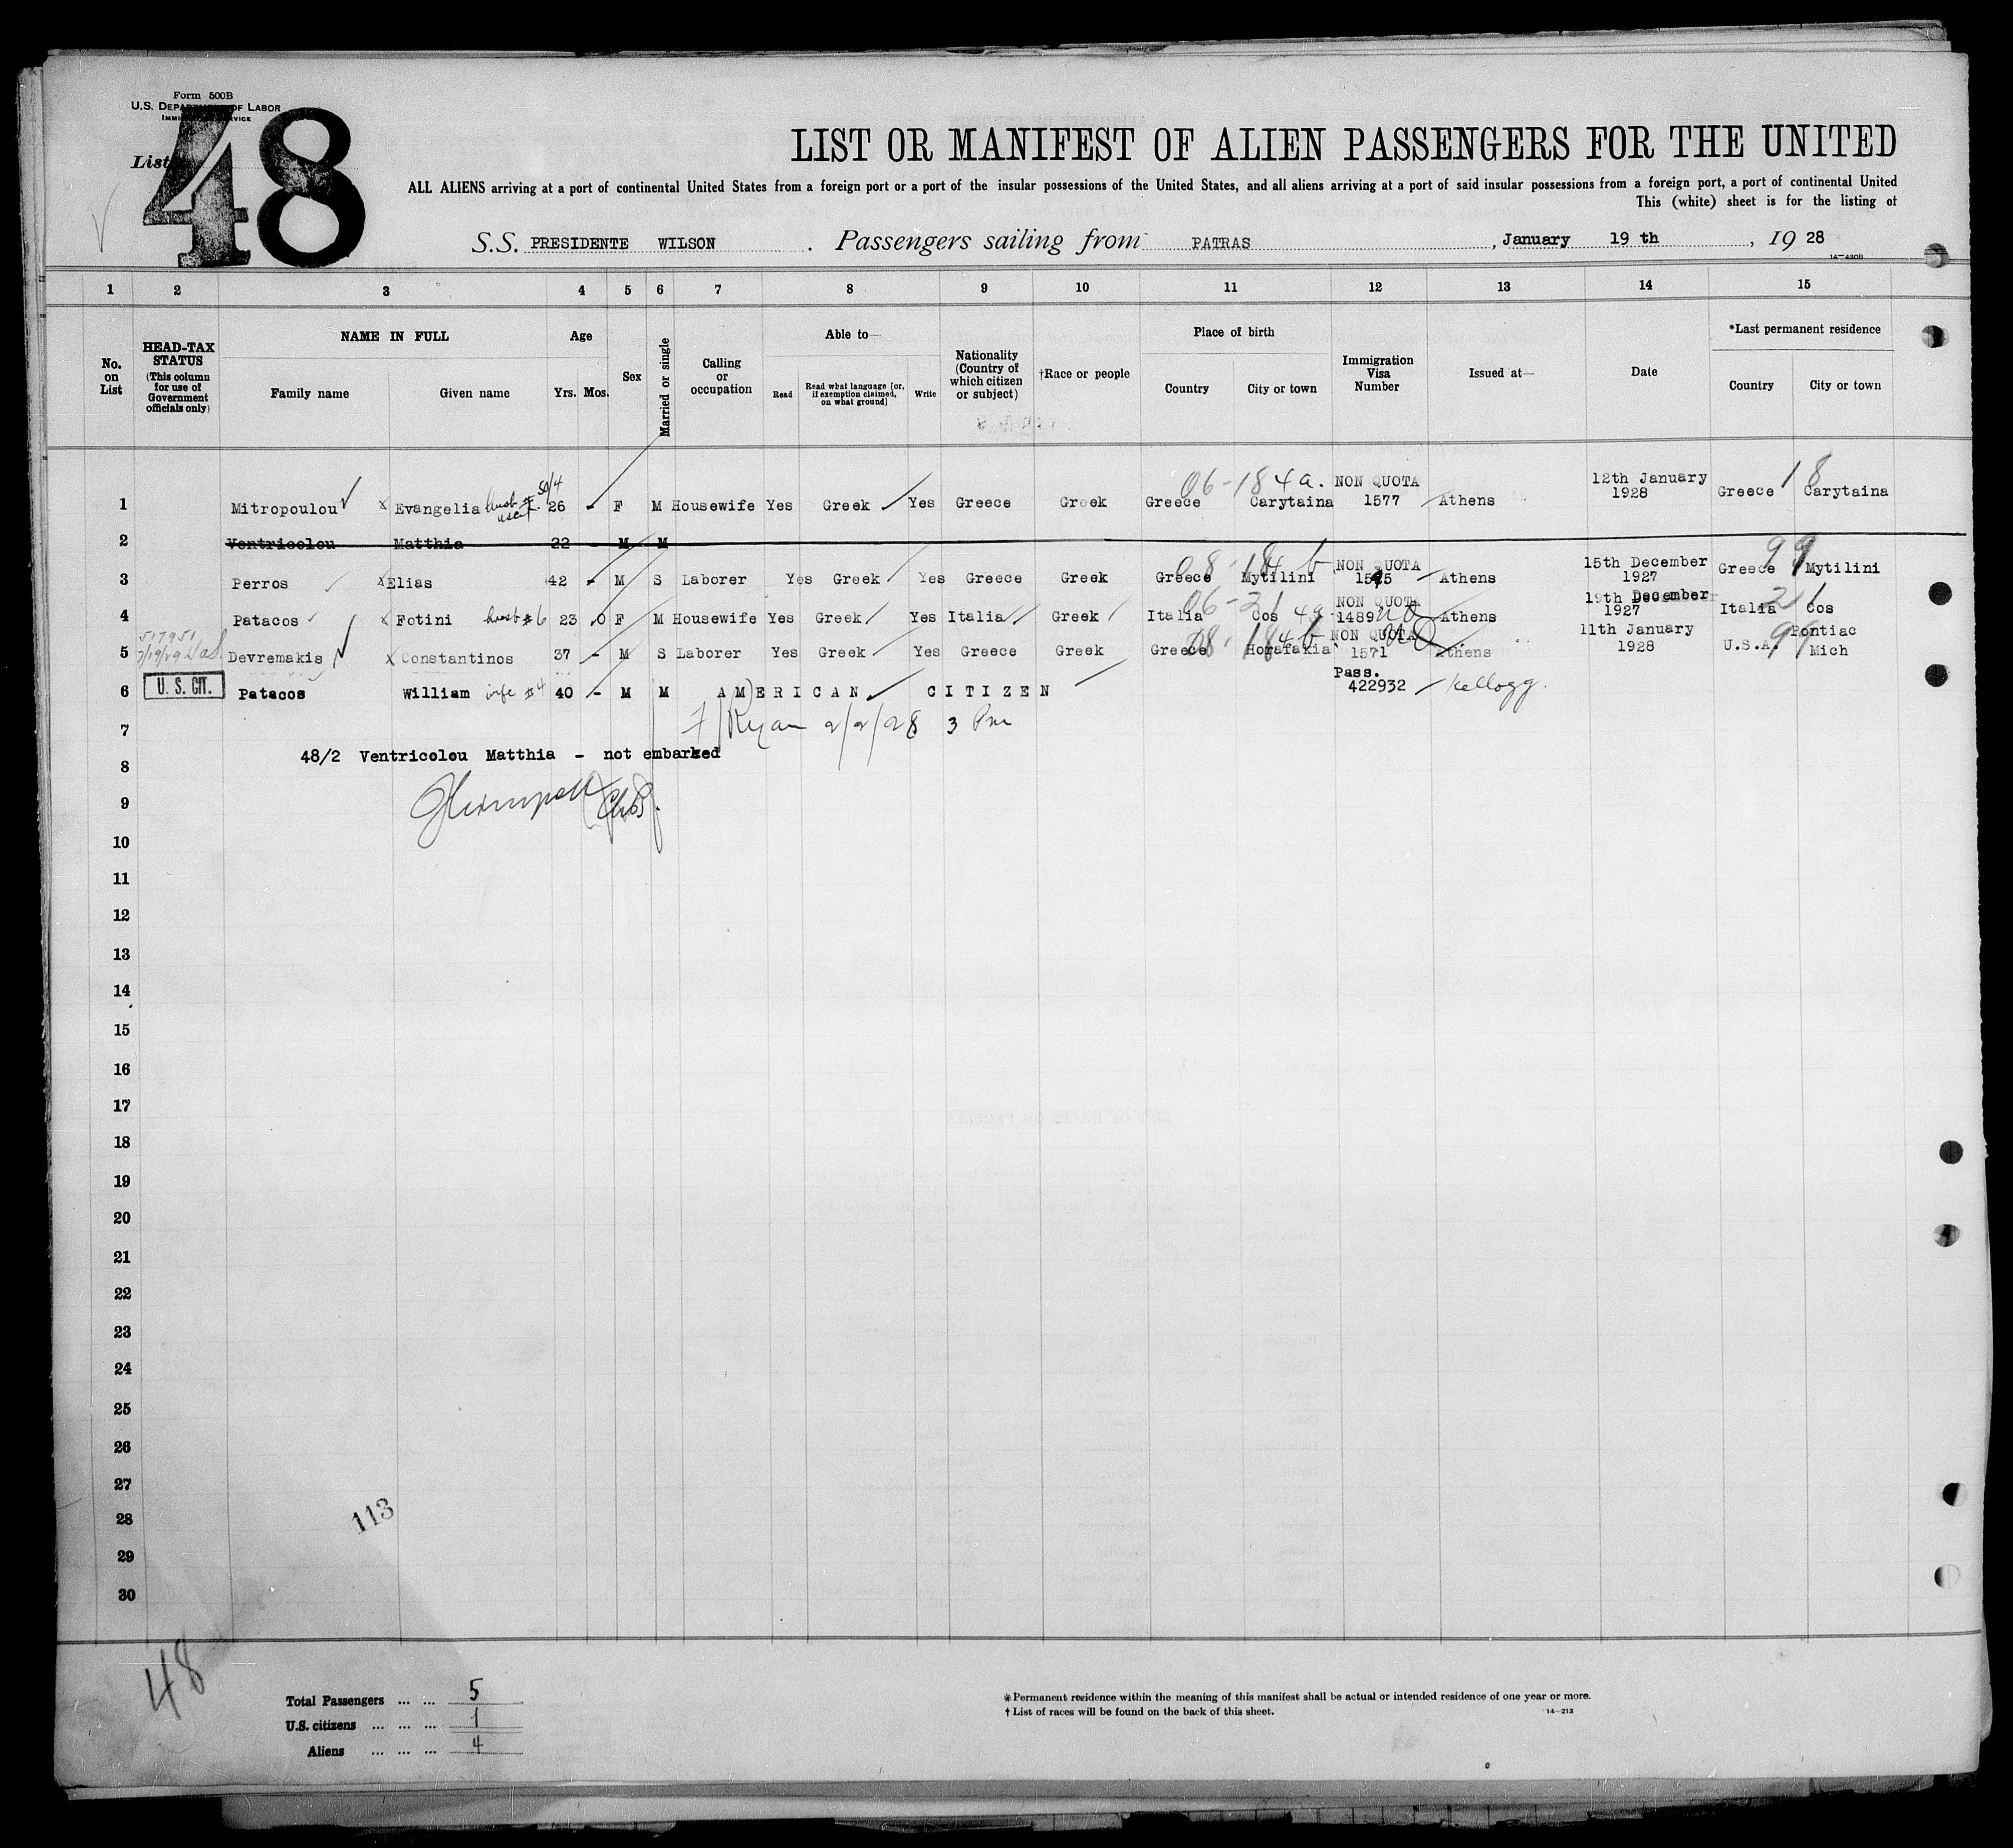 Form 500B
U.S. DEPARTMENT OF LABOR
IMMIGRATION SERVICE
List 48
LIST OR MANIFEST OF ALIEN PASSENGERS FOR THE UNITED
ALL ALIENS arriving at a port of continental United States from a foreign port or a port of the insular possessions of the United States, and all aliens arriving at a port of said insular possessions from a foreign port, a port of continental United
This (white) sheet is for the listing of
S.S. PRESIDENTE WILSON . Passengers sailing from PATRAS , January 19 th , 19 28
14-430B
1 2 3 4 5 6 7 8 9 10 11 12 13 14 15
No. on List
HEAD-TAX STATUS (This column for use of Government officials only)
NAME IN FULL
Family name Given name
Age
Yrs. Mos.
Sex
Married or single
Calling or occupation
Able to—
Read Read what language [or, if exemption claimed, on what ground] Write
Nationality (Country of which citizen or subject)
†Race or people
Place of birth
Country City or town
Immigration Visa Number
Issued at—
Date
*Last permanent residence
Country City or town
06-184a. NON QUOTA 12th January 18
1 Mitropoulou Evangelia husb # 50/4 usct. 26 - F M Housewife Yes Greek Yes Greece Greek Greece Carytaina 1577 Athens 1928 Greece Carytaina
2 Ventricolou Matthia 22 - M M
08-184b NON QUOTA 15th December 99
3 Perros Elias 42 - M S Laborer Yes Greek Yes Greece Greek Greece Mytilini Athens 1927 Greece Mytilini
06-21 4a NON QUOTA 19th December 21
4 Patacos Fotini husb #6 23 0 F M Housewife Yes Greek Yes Italia Greek Italia Cos 1489 Athens 1927 Italia Cos
517951 08-184b NON QUOTA 11th January 99 Pontiac
5 Devremakis Constantinos 37 - M S Laborer Yes Greek Yes Greece Greek Greece Horafakia 1571 Athens 1928 U.S.A. Mich
U. S. CIT. Pass.
6 Patacos William wife #4 40 - M M AMERICAN CITIZEN 422932 Kellogg.
7 Ryan 2/2/28 3 Pm
48/2 Ventricolou Matthia - not embarked
8
9
10
11
12
13
14
15
16
17
18
19
20
21
22
23
24
25
26
27
28
113
29
30
48
Total Passengers ... ... 5
U.S. citizens ... ... ... 1
Aliens ... ... ... 4
* Permanent residence within the meaning of this manifest shall be actual or intended residence of one year or more.
† List of races will be found on the back of this sheet.
14-213